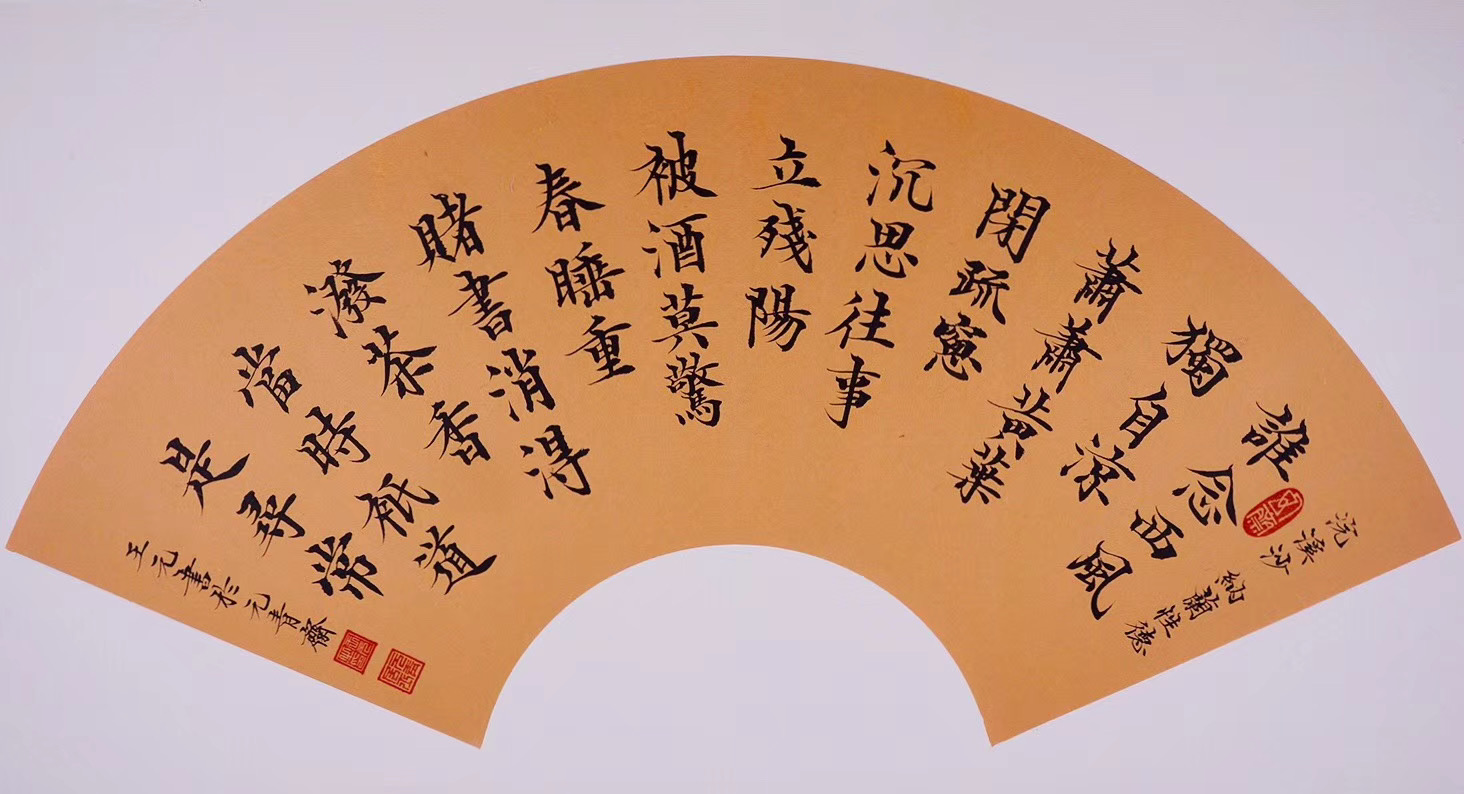 浣溪沙 納蘭性德
誰念西風
獨自涼
蕭蕭黃葉
閉疏窻
沉思往事
立殘陽
被酒莫驚
春睡重
賭書消得
潑茶香
當時祇道
是尋常
王元書於元青齋